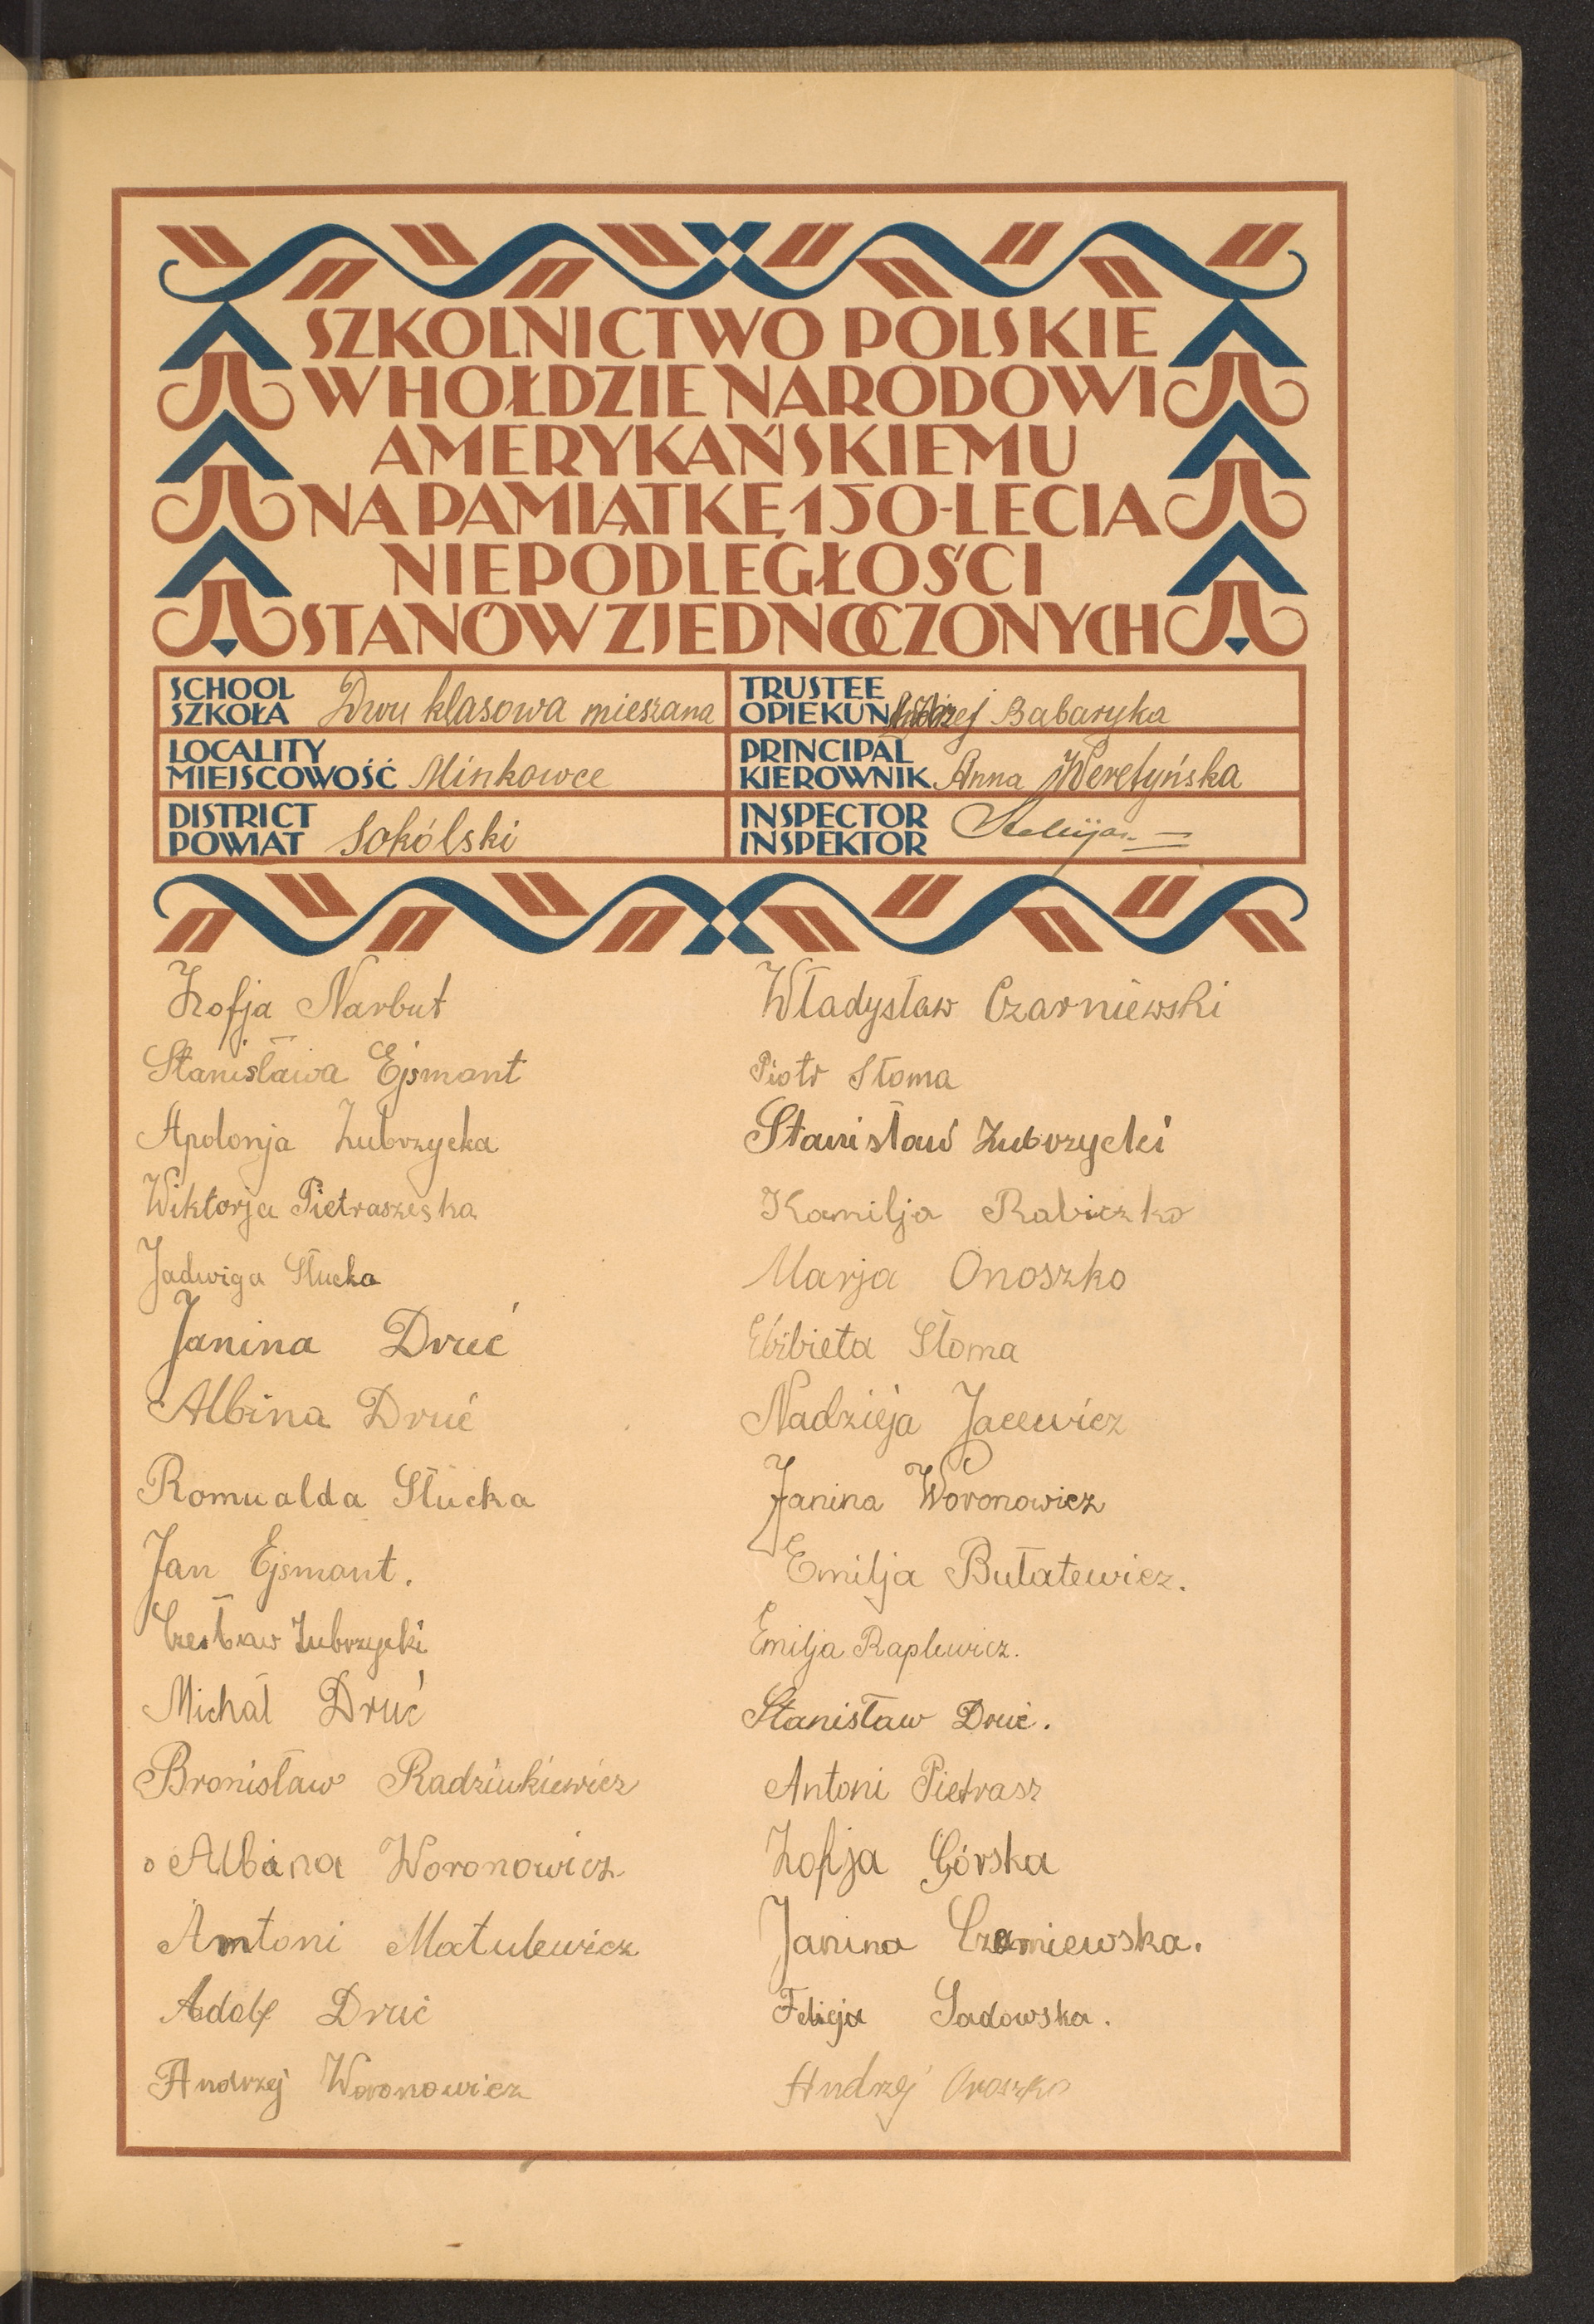 SZKOLNICTWO POLSKIE
W HOŁDZIE NARODOWI
AMERYKAŃSKIEMU
NA PAMIĄTKĘ 150-LECIA
NIEPODLEGŁOŚCI
STANÓW ZJEDNOCZONYCH
SCHOOL
SZKOŁA Dwu klasowa mieszana
TRUSTEE
OPIEKUN Andrzej Babaryka
LOCALITY
MIEJSCOWOŚĆ Minkowce
PRINCIPAL
KIEROWNIK Anna Weretyńska
DISTRICT
POWIAT Sokólski
INSPECTOR
INSPEKTOR
Zofja Narbut
Stanisława Ejsmont
Apolonja Zubrzycka
Wiktorja Pietraszeska
Jadwiga Słucka
Janina Druć
Albina Druć
Romualda Słucka
Jan Ejsmont.
Czesław Zubrzycki
Michał Druć
Bronisław Radziukiewicz
Albina Woronowicz
Antoni Matulewicz
Adolf Druć
Andrzej Woronowicz
Władysław Czarniewski
Piotr Słoma
Stanisław Zubrzycki
Kamilja Rabiczko
Marja Onoszko
Elżbieta Słoma
Nadzieja Jacewicz
Janina Woronowicz
Emilja Bułatewicz.
Emilja Raplewicz.
Stanisław Druć.
Antoni Pietrasz
Zofija Górska
Janina Czarniewska.
Felicja Sadowska.
Andrzej Onoszko